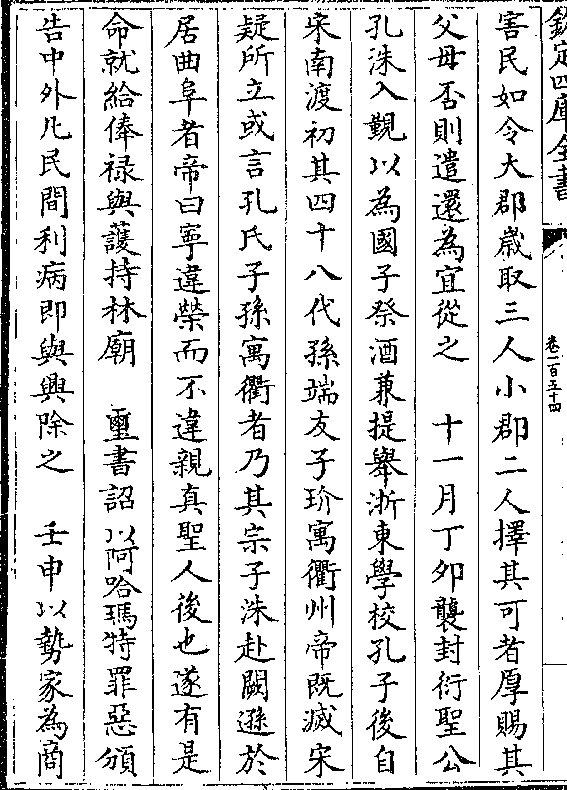 欽定四庫全書
卷一百五十四
害民如令大郡嵗取三人小郡二人擇其可者厚賜其
父母否則遣還為宜從之　十一月丁夘襲封衍聖公
孔洙入覲以為國子祭酒兼提舉浙東學校孔子後自
宋南渡初其四十八代孫端友子玠寓衢州帝既滅宋
疑所立或言孔氏子孫寓衢者乃其宗子洙赴闕遜於
居曲阜者帝曰寧違榮而不違親真聖人後也遂有是
命就給俸禄與䕶持林廟　璽書詔以阿哈瑪特罪惡頒
告中外凡民間利病即與興除之　壬申以勢家為商